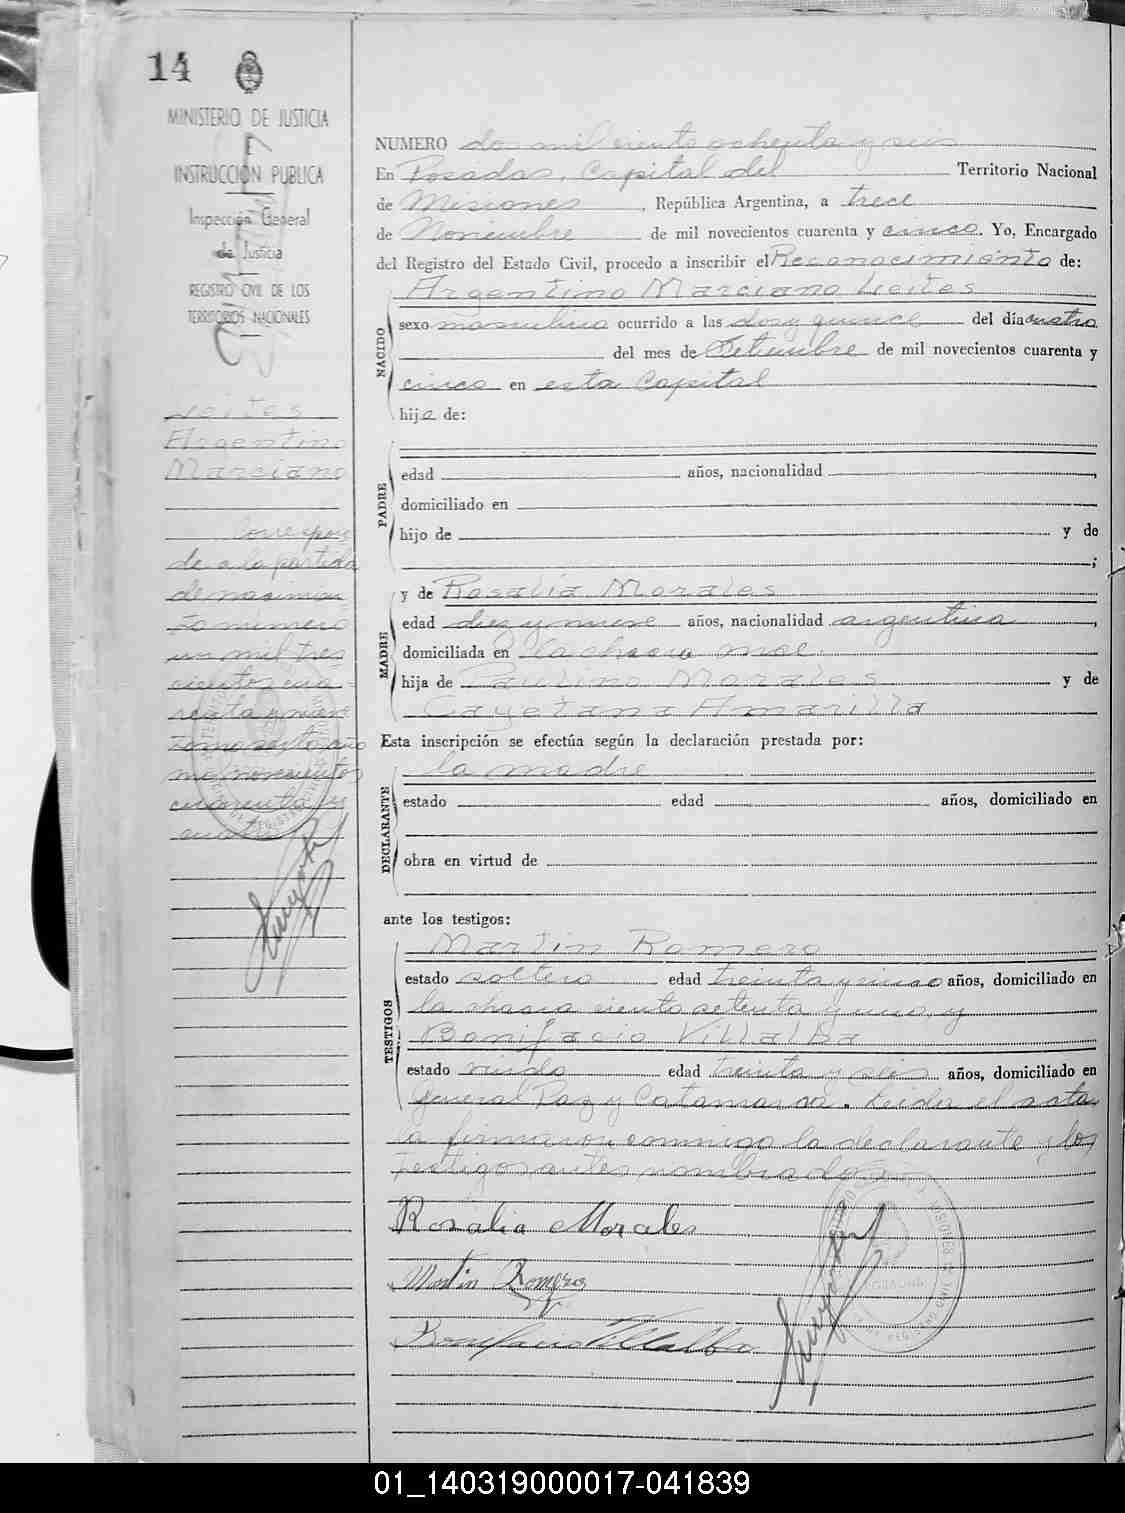 14
MINISTERIO DE JUSTICIA
E
INSTRUCCION PUBLICA
Inspección General
de Justicia
REGISTRO CIVIL DE LOS
TERRITORIOS NACIONALES
Leites
Argentino
Marciano
Correspon
de a la partida
de nacimien
to número
un mil tres
cientos cua
renta y nueve
tomo sexto año
mil novecientos
cuarenta y
cinco
NUMERO dos mil ciento ochenta y seis
En Posadas, Capital del Territorio Nacional
de Misiones, República Argentina, a trece
de Noviembre de mil novecientos cuarenta y cinco. Yo, Encargado
del Registro del Estado Civil, procedo a inscribir el Reconocimiento de:
NACIDO
Argentino Marciano Leites
sexo masculino ocurrido a las dos y quince del día cuatro
del mes de Setiembre de mil novecientos cuarenta y
cinco en esta Capital
hijo de:
PADRE
edad años, nacionalidad ,
domiciliado en
hijo de y de
;
MADRE
y de Rosalia Morales
edad diez y nueve años, nacionalidad argentina,
domiciliada en la chacra
hija de Paulino Morales y de
Cayetana Amarilla
Esta inscripción se efectúa según la declaración prestada por:
DECLARANTE
la madre
estado edad años, domiciliado en
obra en virtud de
ante los testigos:
TESTIGOS
Martin Romero
estado soltero edad treinta y cinco años, domiciliado en
la chacra ciento setenta y uno, y
Bonifacio Villalba
estado viudo edad treinta y seis años, domiciliado en
general Paz y Catamarca. Leida el acta
la firmaron conmigo la declarante y los
testigos antes nombrados
Rosalia Morales
Martin Romero
Bonifacio Villalba
01_140319000017-041839